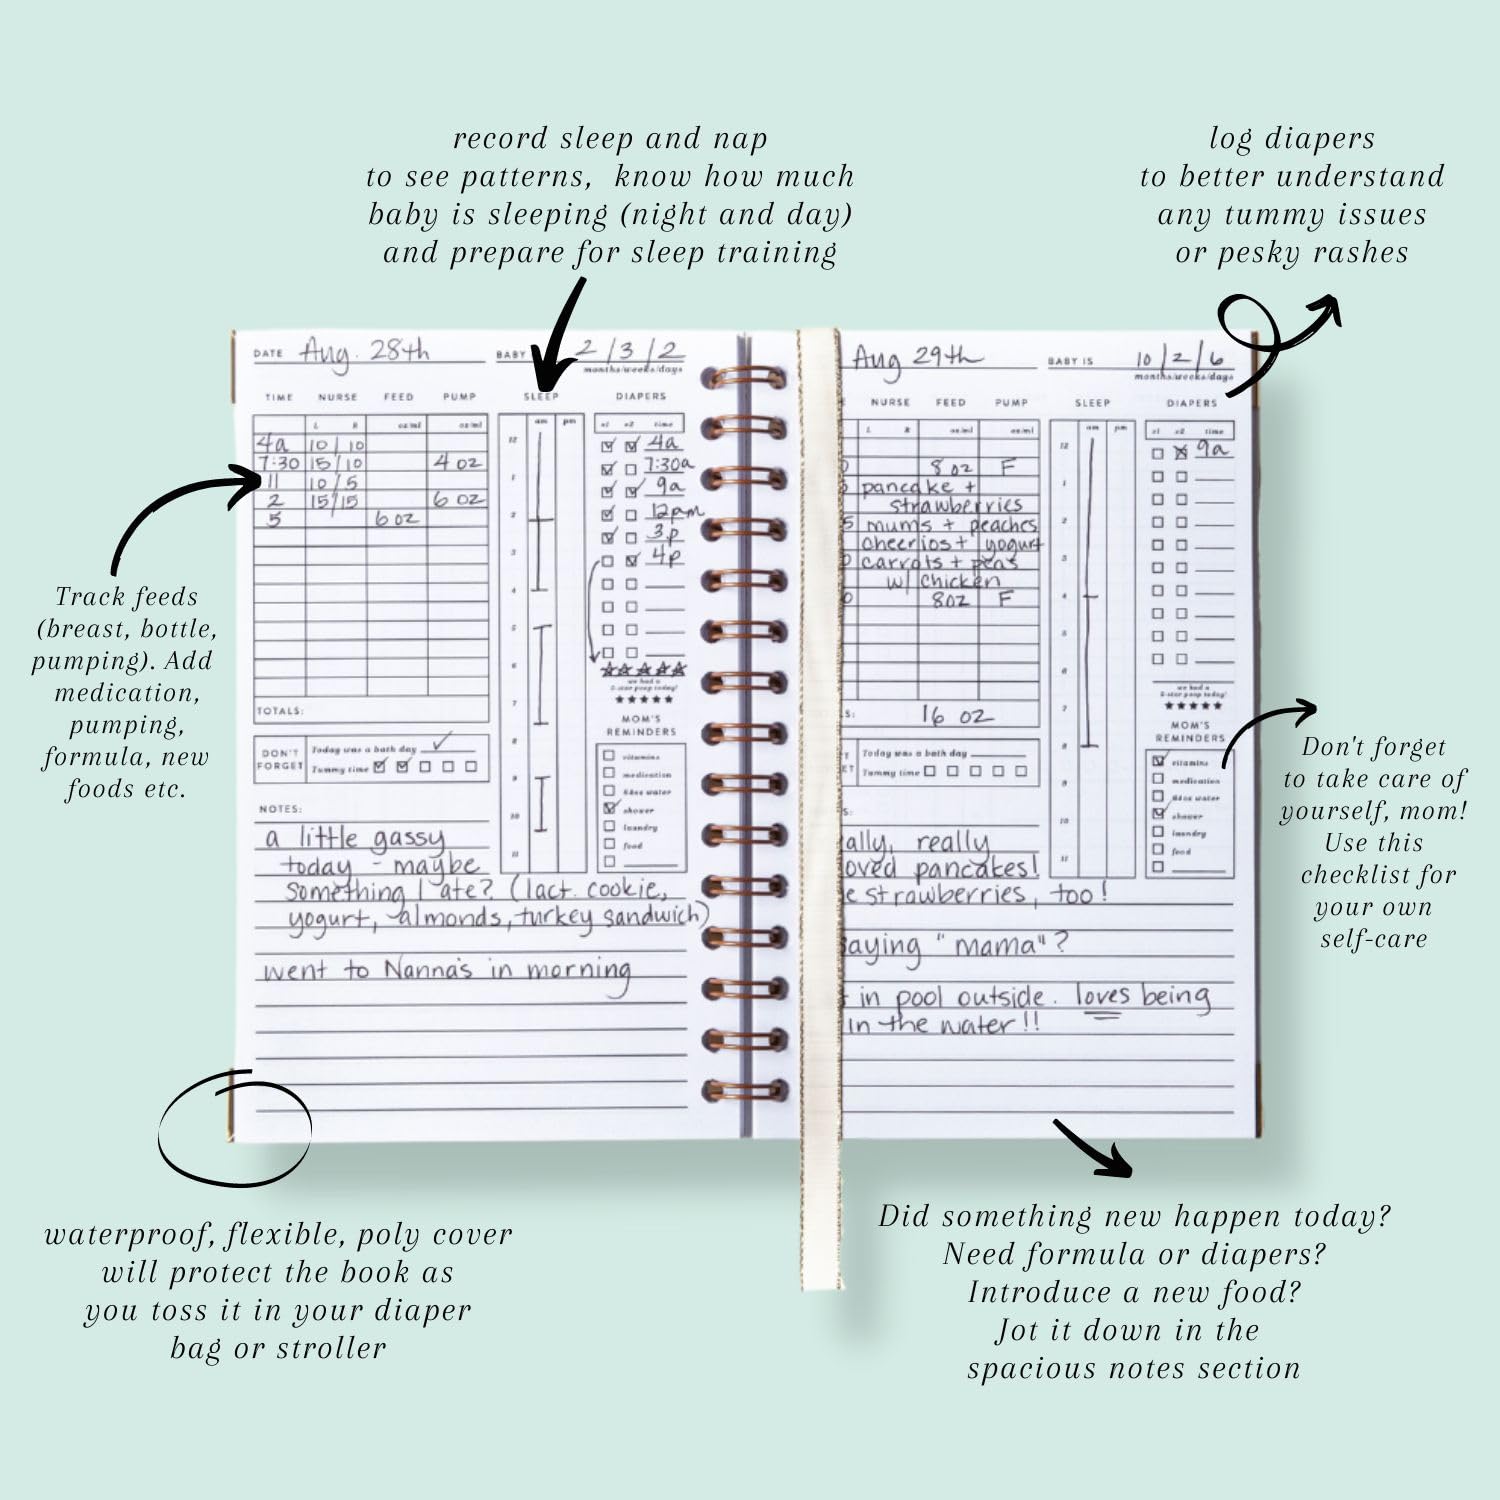 record sleep and nap
to see patterns, know how much
baby is sleeping (night and day)
and prepare for sleep training
log diapers
to better understand
any tummy issues
or pesky rashes
Track feeds
(breast, bottle,
pumping). Add
medication,
pumping,
formula, new
foods etc.
DATE Aug. 28th BABY 2/3/2
months/weeks/days
TIME NURSE FEED PUMP SLEEP DIAPERS
L R oz/ml oz/ml am pm #1 #2 time
4a 10/10
7:30 15/10 4 oz
11 10/5
2 15/15 6 oz
5 6 oz
12
1
2
3
4
5
6
7
8
9
10
11
4a
7:30a
9a
12pm
3p
4p
we had a
5-star poop today!
★★★★★
TOTALS:
DON'T
FORGET
Today was a bath day
Tummy time
MOM'S
REMINDERS
vitamins
medication
64oz water
shower
laundry
food
NOTES:
a little gassy
today - maybe
something I ate? (lact. cookie,
yogurt, almonds, turkey sandwich)
went to Nanna's in morning
Aug 29th BABY IS 10/2/6
months/weeks/days
NURSE FEED PUMP SLEEP DIAPERS
L R oz/ml oz/ml am pm #1 #2 time
8 oz F
pancake +
strawberries
mums + peaches
cheerios + yogurt
carrots + peas
w/ chicken
8oz F
16 oz
12
1
2
3
4
5
6
7
8
9
10
11
9a
we had a
5-star poop today!
★★★★★
Today was a bath day
Tummy time
MOM'S
REMINDERS
vitamins
medication
64oz water
shower
laundry
food
really
pancakes!
strawberries, too!
"mama"?
in pool outside. loves being
in the water!!
Don't forget
to take care of
yourself, mom!
Use this
checklist for
your own
self-care
waterproof, flexible, poly cover
will protect the book as
you toss it in your diaper
bag or stroller
Did something new happen today?
Need formula or diapers?
Introduce a new food?
Jot it down in the
spacious notes section